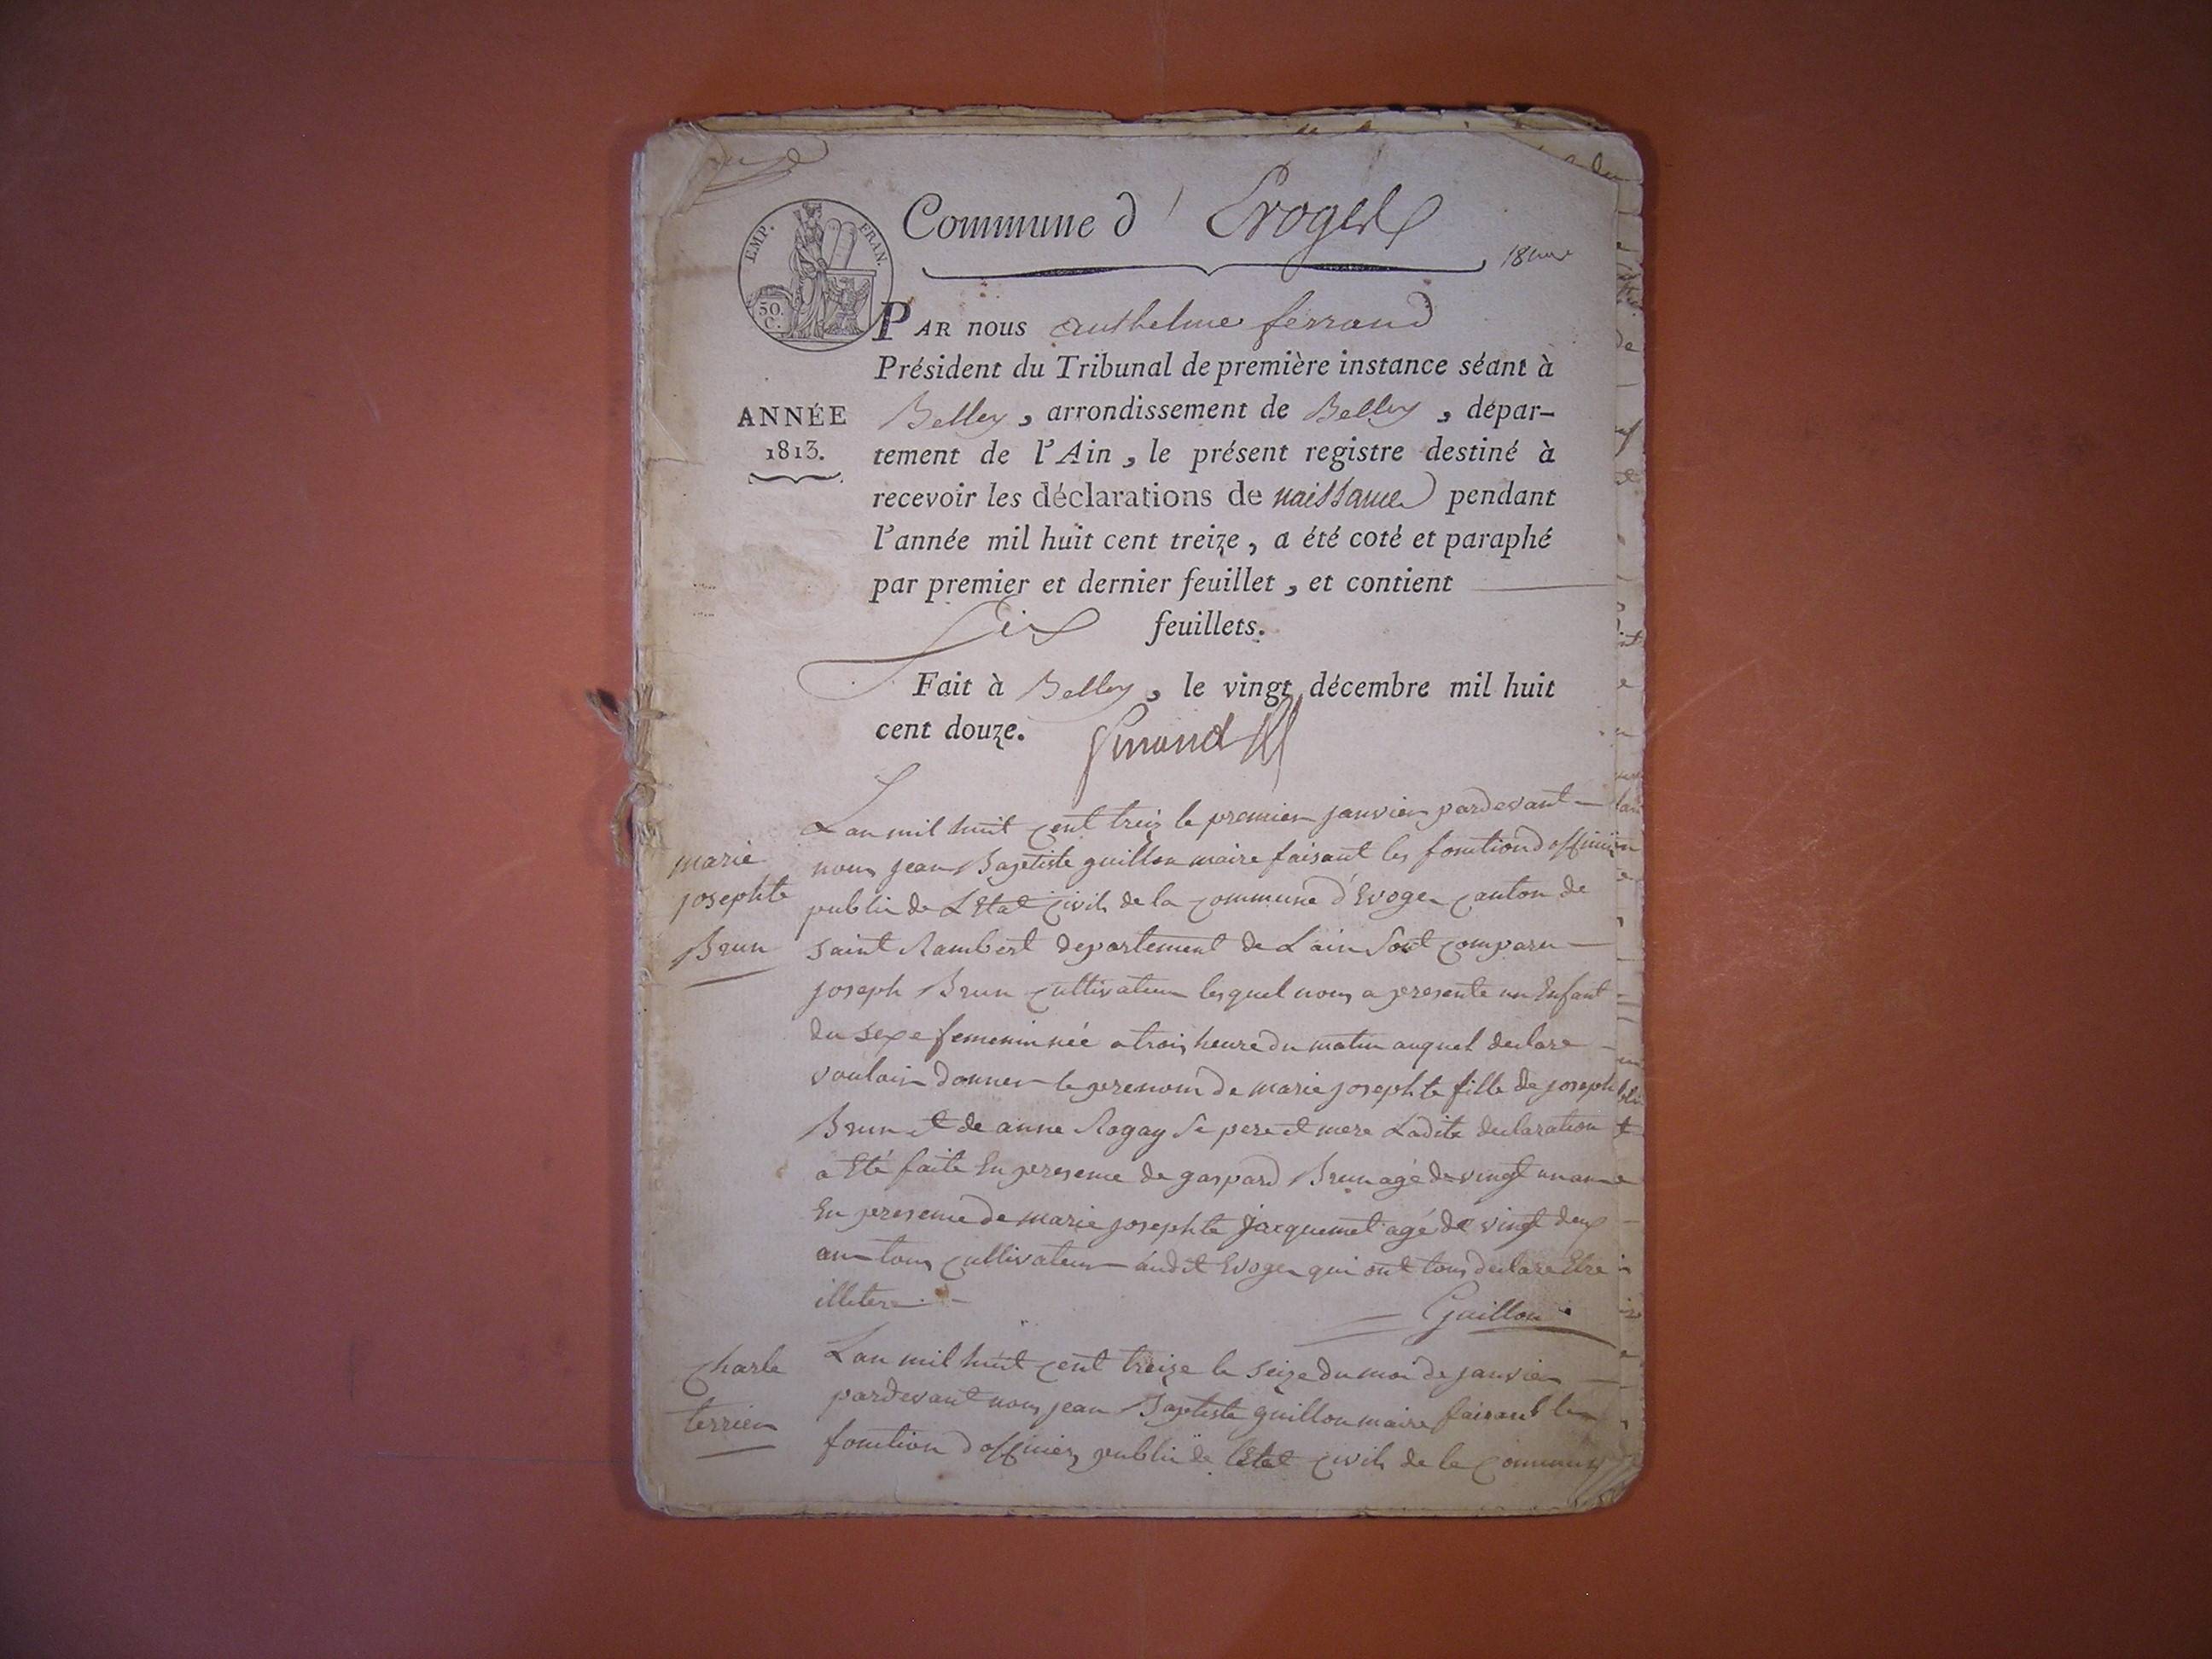 Commune d'Evoges
1ere
EMP. FRAN.
30. C.
PAR nous anthelme ferrand
Président du Tribunal de première instance séant à
ANNÉE
1813.
Belley, arrondissement de Belley, dépar-
tement de l'Ain, le présent registre destiné à
recevoir les déclarations de naissance pendant
l'année mil huit cent treize, a été coté et paraphé
par premier et dernier feuillet, et contient
Six feuillets.
Fait à Belley, le vingt décembre mil huit
cent douze.
marie
josephte
Brun
Lan mil huit cent treiz le premier janvier pardevant
nous jean Baptiste guillon maire faisant les fonction d officier
public de L Etat civil de la commune d'Evoges canton de
saint Rambert departement de Lain sont comparu
joseph Brun cultivateur lesquel nous a presente un Enfant
du sexe femenin née a trois heure du matin auquel declare
vouloir donner le prenom de marie josephte fille de joseph
Brun et de anne Rogay se pere et mere Ladite declaration
a Eté faite En presence de gaspard Brun agé de vingt un an
En presence de marie josephte jacquemet agé de vingt deux
an tous cultivateur audit Evoges qui ont tous declare Etre
illiterr
Guillon
Charle
terrier
Lan mil huit cent treize le seize du moi de janvier
pardevant nous jean Baptiste guillon maire faisant les
fonction d officier public de letat civil de la commune